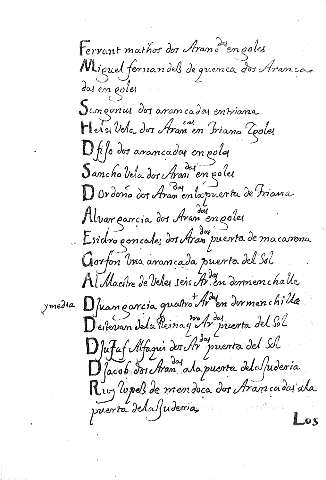 Ferrant mathos dos Aran das en goles
Miguel fernandes de quenca dos Aranca
das en goles
dos arancadas en triana
Vela dos Aran cas en Triana Zgoles
D dos arancadas en goles
Sancho Vela dos Aran das en goles
D Ordoño dos Aran das en la puerta de Triana
Alvar garcia dos Aran das en goles
Esidro goncales dos Aran das puerta de macarena
Una arancada puerta del Sol
Al Maestre de Veles seis Ar das en dormenchalla
y media D Juan garcia quatro Ar das en dormenchilla
D estevan de la Reina Ar das puerta del Sol
D Juzaf Alfaqui dos Ar das puerta del Sol
D Jacob dos Aran das a la puerta de la Juderia
Ruy lopes de mendoca dos Arancadas a la
puerta de la Juderia
Los